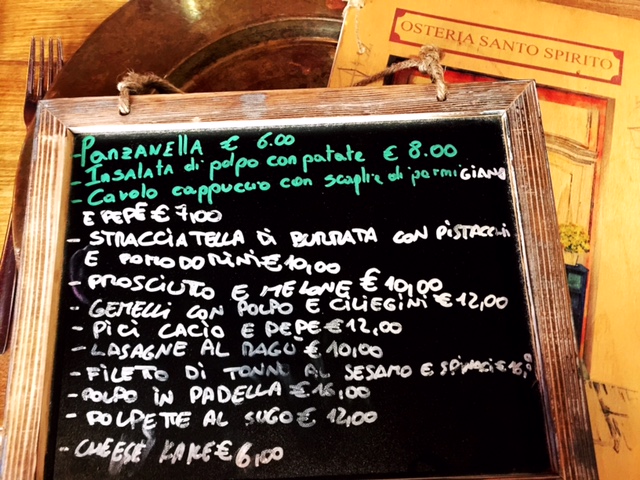 OSTERIA SANTO SPIRITO
- PANZANELLA € 6.00
- INSALATA di polpo con patate € 8.00
- Cavolo cappuccio con scaglie di parmiGIANO
E PEPE € 7,00
- STRACCIATELLA DI BURRATA CON PISTACCHI
E POMODORINI € 10,00
- PROSCIUTO E MELONE € 10,00
- GEMELLI CON POLPO E CILIEGINI € 12,00
- PICI CACIO E PEPE € 12,00
- LASAGNE AL RAGÙ € 10,00
- FILETO DI TONNO AL SESAMO E SPINACI €
- POLPO IN PADELLA € 16,00
- POLPETTE AL SUGO € 12,00
- CHEESE KAKE € 6,00